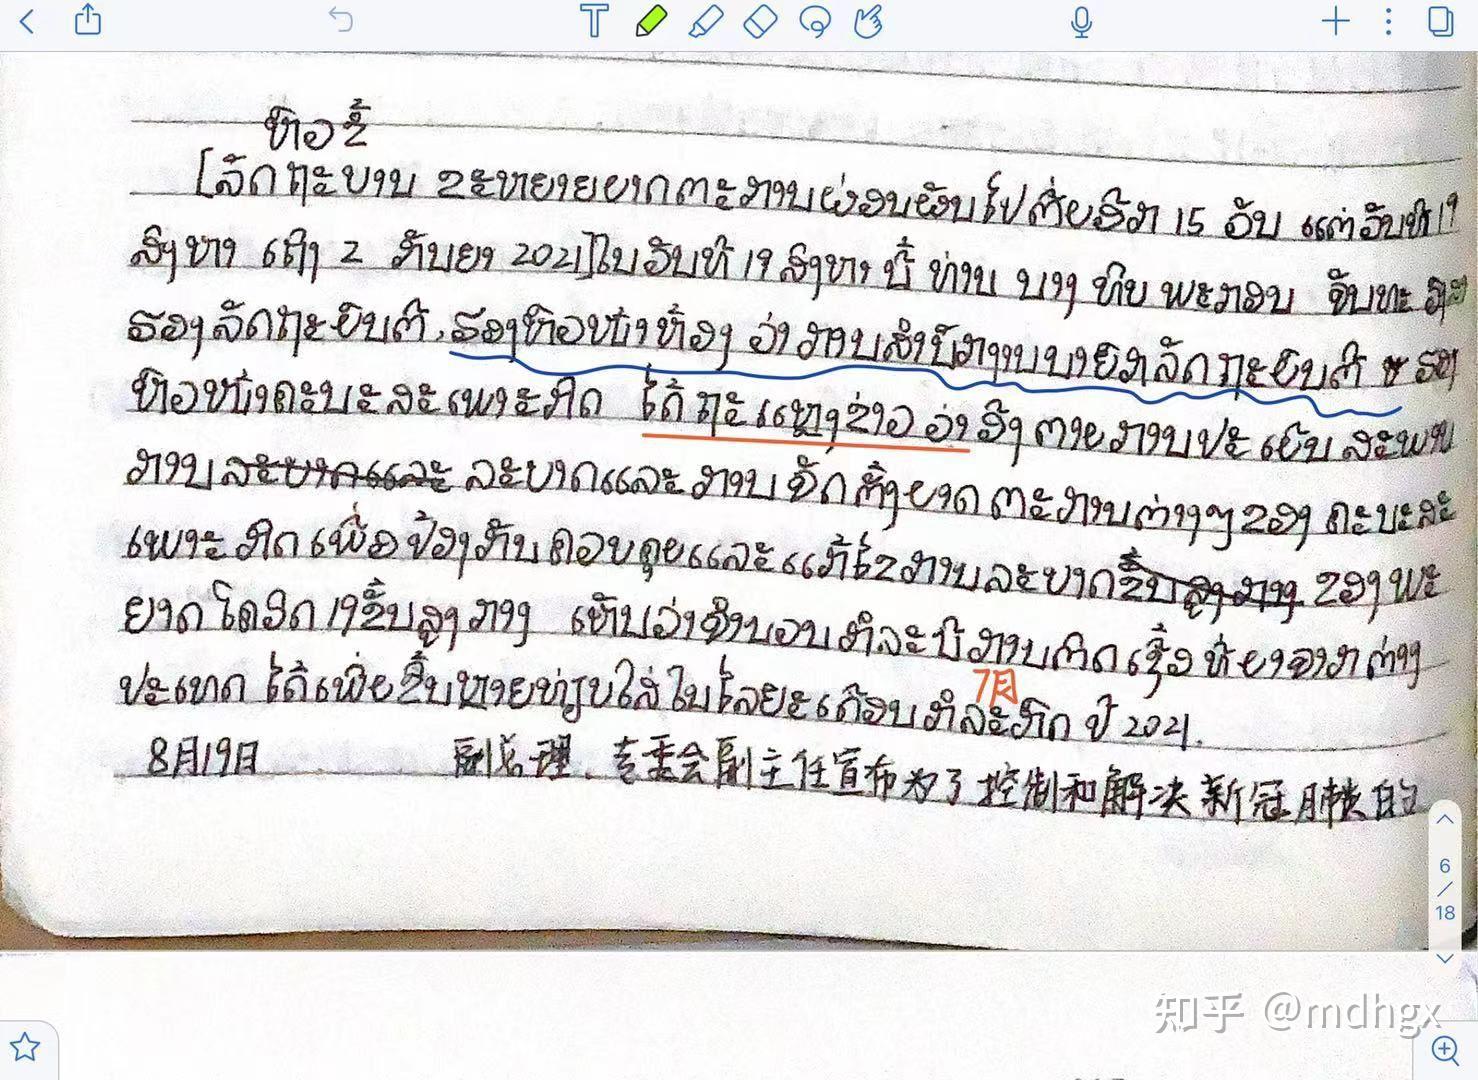 ຫົວຂໍ້
[ລັດຖະບານ ຂະຫຍາຍມາດຕະການຜ່ອນຜັນໄປຕື່ມອີກ 15 ວັນ ແຕ່ວັນທີ 19
ສິງຫາ ເຖິງ 2 ກັນຍາ 2021] ໃນວັນທີ 19 ສິງຫາ ນີ້ ທ່ານ ນາງ ທິບພະກອນ ຈັນທະ
ຮອງລັດຖະມົນຕີ, ຮອງຫົວໜ້າຫ້ອງ ວ່າການສຳນັກງານນາຍົກລັດຖະມົນຕີ ຮອງ
ຫົວໜ້າຄະນະສະເພາະກິດ ໄດ້ຖະແຫຼງຂ່າວ ວ່າ ອີງຕາມການປະເມີນສະພາບ
ການ ລະບາດແລະ ລະບາດແລະການຈັດຕັ້ງມາດຕະການຕ່າງໆຂອງ ຄະນະສະ
ເພາະກິດເພື່ອປ້ອງກັນຄວບຄຸມແລະແກ້ໄຂການລະບາດຂຶ້ນສູງກາງ ຂອງພະ
ຍາດໂຄວິດ 19 ຂຶ້ນສູງກາງ ເຫັນວ່າຈຳນວນກໍລະນີການຕິດເຊື້ອ ທີ່ມາຈາກຕ່າງ
7月
ປະເທດ ໄດ້ເພີ່ມຂຶ້ນຫຼາຍທຽບໃສ່ໃນໄລຍະເດືອນກໍລະກົດ ປີ 2021.
8月19日 副总理、专委会副主任宣布为了控制和解决新冠肺炎的
6
/
18
知乎 @mdhgx